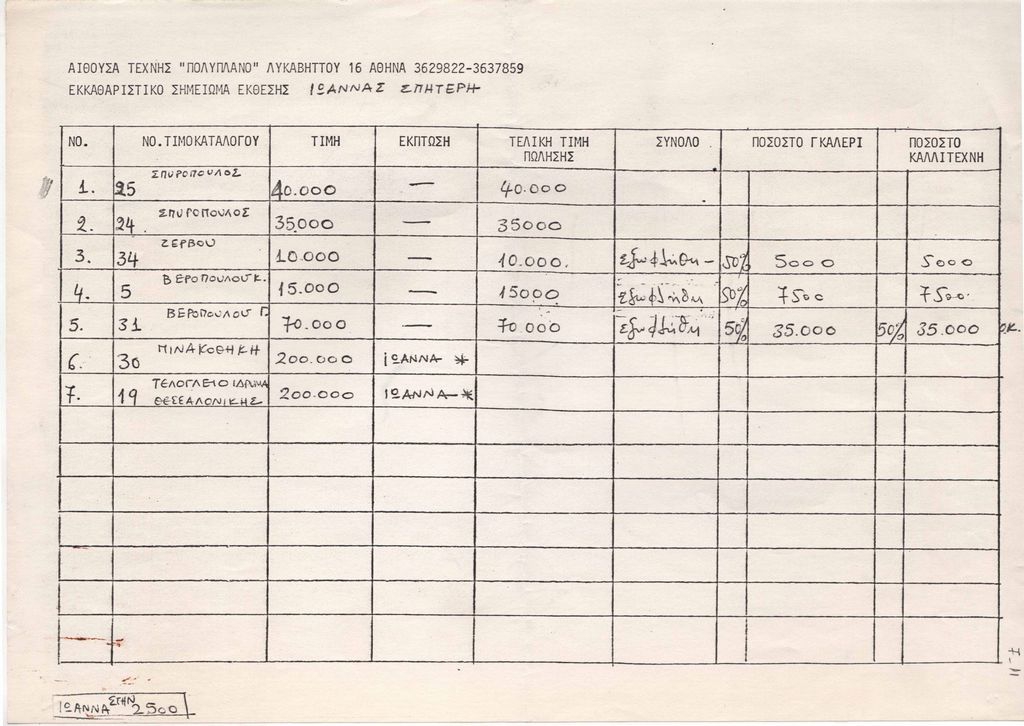 ΑΙΘΟΥΣΑ ΤΕΧΝΗΣ "ΠΟΛΥΠΛΑΝΟ" ΛΥΚΑΒΗΤΤΟΥ 16 ΑΘΗΝΑ 3629822-3637859
ΕΚΚΑΘΑΡΙΣΤΙΚΟ ΣΗΜΕΙΩΜΑ ΕΚΘΕΣΗΣ ΙΩΑΝΝΑΣ ΣΠΗΤΕΡΗ
ΝΟ. ΝΟ.ΤΙΜΟΚΑΤΑΛΟΓΟΥ ΤΙΜΗ ΕΚΠΤΩΣΗ ΤΕΛΙΚΗ ΤΙΜΗ ΠΩΛΗΣΗΣ ΣΥΝΟΛΟ ΠΟΣΟΣΤΟ ΓΚΑΛΕΡΙ ΠΟΣΟΣΤΟ ΚΑΛΛΙΤΕΧΝΗ
1. 25 ΣΠΥΡΟΠΟΥΛΟΣ 40.000 — 40.000
2. 24 ΣΠΥΡΟΠΟΥΛΟΣ 35.000 — 35000
3. 34 ΖΕΡΒΟΥ 10.000 — 10.000. Εξωφλήθη - 50% 5000 5000
4. 5 ΒΕΡΟΠΟΥΛΟΥ Κ. 15.000 — 15000 Εξωφλήθη 50% 7500 7500.
5. 31 ΒΕΡΟΠΟΥΛΟΥ Γ. 70.000 — 70.000 Εξωφλήθη 50% 35.000 50% 35.000 Ο.Κ.
6. 30 ΠΙΝΑΚΟΘΗΚΗ 200.000 ΙΩΑΝΝΑ *
7. 19 ΤΕΛΟΓΛΕΙΟ ΙΔΡΥΜΑ ΘΕΣΣΑΛΟΝΙΚΗΣ 200.000 ΙΩΑΝΝΑ *
ΣΤΗΝ
ΙΩΑΝΝΑ 2500